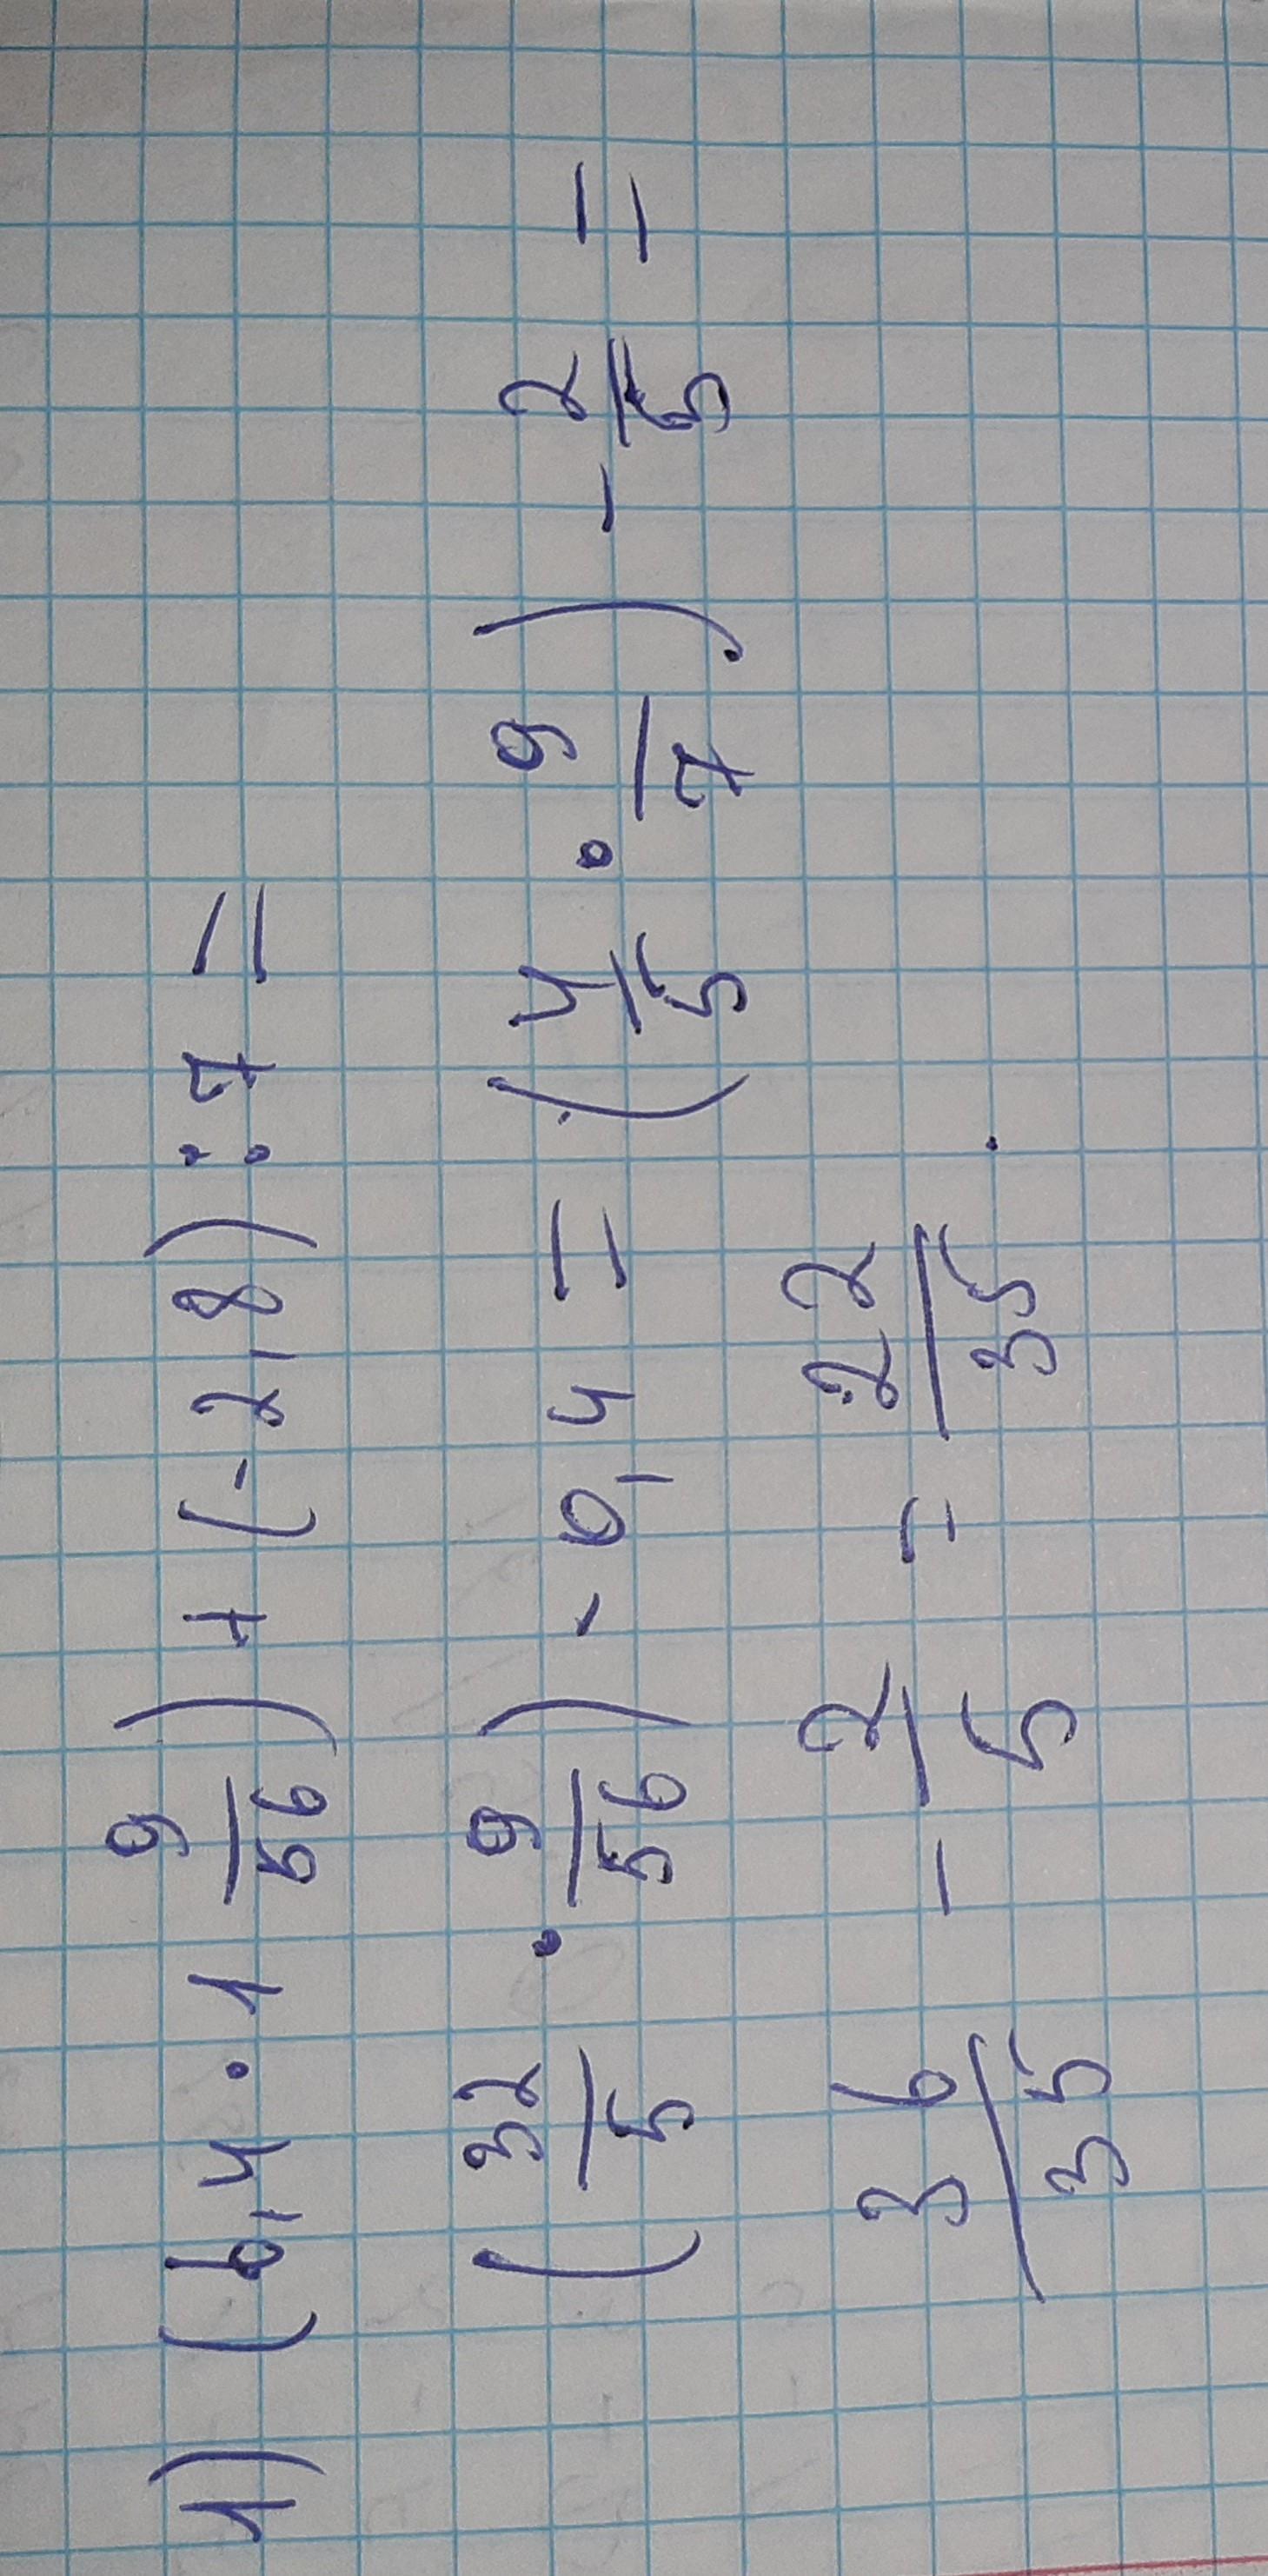 1) (6,4 · 1 9/56) + (-2,8) : 7 =
(32/5 · 9/56) - 0,4 = (4/5 · 9/7) - 2/5 =
36/35 - 2/5 = 22/35.